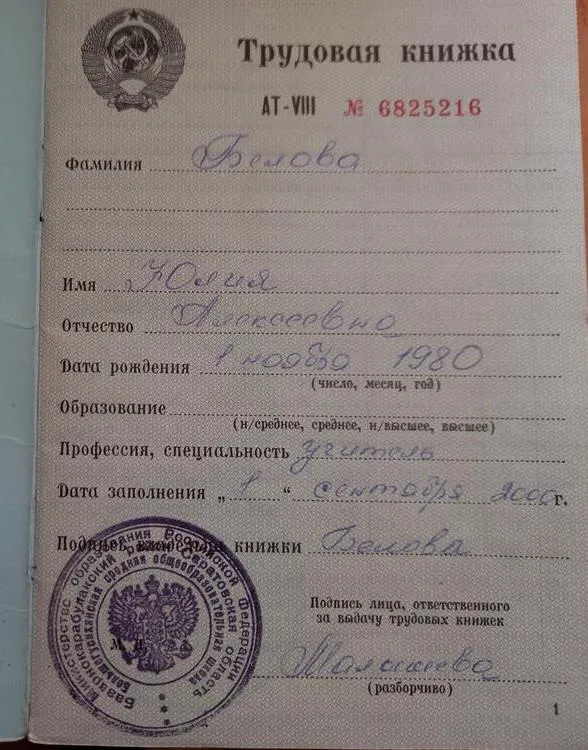 Трудовая книжка
АТ-VIII № 6825216
Фамилия Белова
Имя Юлия
Отчество Алексеевна
Дата рождения 1 ноября 1980
(число, месяц, год)
Образование
(н/среднее, среднее, н/высшее, высшее)
Профессия, специальность учитель
Дата заполнения „ 1 “ сентября 2000г.
Подпись владельца книжки Белова
Подпись лица, ответственного
за выдачу трудовых книжек
(разборчиво)
М. П.
Министерство образования Российской Федерации
Базарнокарабулакский район Саратовская область
средняя общеобразовательная школа
1